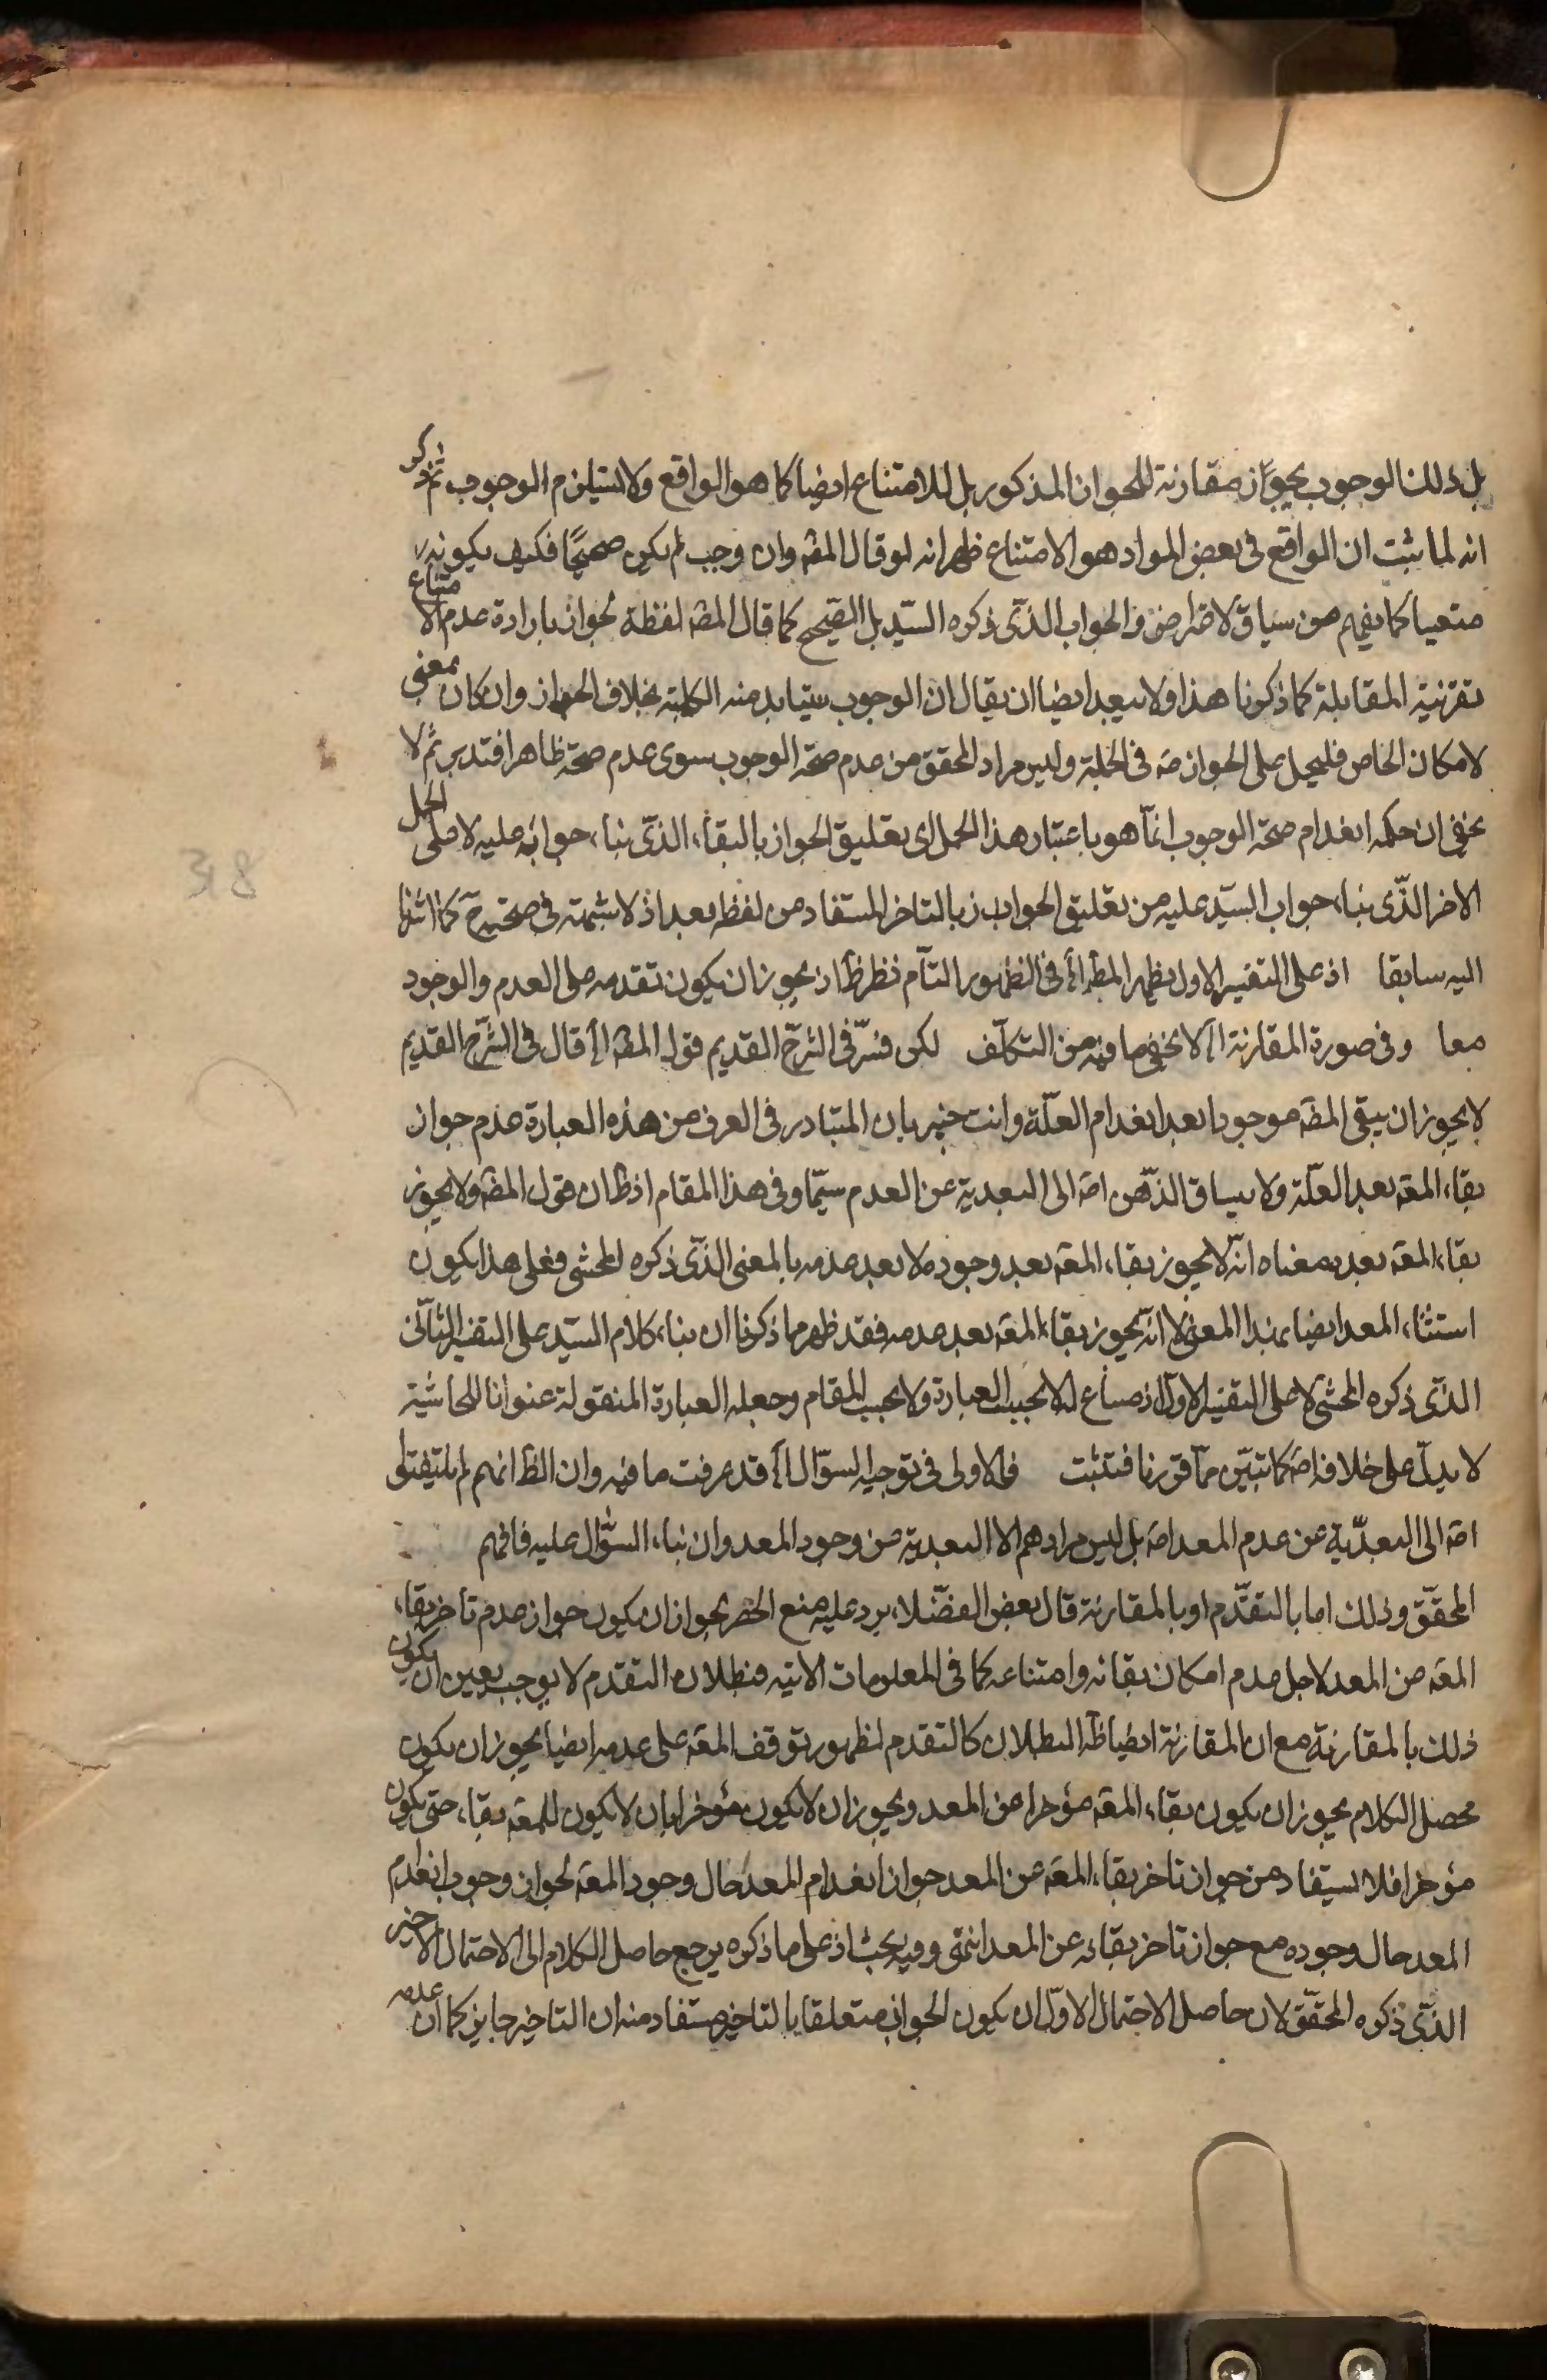 بل ذلك الوجوب يجوّز مقارنة للجواز المذكور بل للامتناع ايضا كما هو الواقع ولا يستلزم الوجوب ثم نذكر
انه لما ثبت ان الواقع فى بعض المواد هو الامتناع ظهر انه لو قال المصه وان وجب لم يكن صحيحًا فكيف يكونه
متعينا كما يفهم من سياق الاعتراض والجواب الذّى ذكره السيّد بل الصّحيح كما قال المصه لفظة يجوز بارادة عدم الامتناع
بقرنية المقابلة كما ذكرنا هذا ولا يبعد ايضا ان يقال ان الوجوب يتبادر منه الكلية بخلاف الجواز وان كان بمعنى
لامكان الخاص فليحمل على الجواز صه فى الجملة وليس مراد المحقق من عدم صحّة الوجوب سوى عدم صحته ظاهرا فتدبر ثم لا
يخفى ان حكمه انعدام صحة الوجوب انّما هو باعتبار هذا الحمل اى تعليق الجواز بالبقاء الذّى بناء جوابه عليه لا على الحمل
الاخر الذّى بناء جواب السيّد عليه من تعليق الجواز بالتاخر المستفاد من لفظ بعد اذ لا شبهة فى صحته ح كما اشرنا
اليه سابقا اذ على التفسير الاول يظهر المط الخ فى الظهور التآم نظر ظ اذ يجوز ان يكون تقدمه على العدم والوجود
معا وفى صورة المقارنة الخ لا يخفى ما فيه من التكلّف لكن فسّر فى الشرح القديم قول المصه الخ قال فى الشّرح القديم
لا يجوز ان يبقى المصه موجودا بعد انعدام العلّة وانت خبير بان المتبادر فى العرف من هذه العبارة عدم جواز
بقاء المعه بعد العلّة ولا يساق الذّهن اصه الى البعدية عن العدم سيّما وفى هذا المقام اذ ظ ان قول المصه ولا يجوز
بقاء المعه بعده معناه انّه لا يجوز بقاء المعه بعد وجوده لا بعد عدمه بالمعنى الذّى ذكره المحشى فعلى هذا يكون
استثناء المعد ايضا بهذا المعنى لا انّه يجوز بقاء المعه بعد عدمه فقد ظهر مما ذكرنا ان بناء كلام السيّد على التفسير الثانى
الذّى ذكره المحشى لا على التفسير الاول اذ مساغ له لا بحسب العبارة ولا بحسب المقام وجعله العبارة المنقولة عنوانا للحاشية
لا يدلّ على خلافه اصه كما تبيّن ممّا قررنا فتثبت فالاولى فى توجيه السؤال الخ قد عرفت ما فيه وان الظ انهم لم يلتفتوا
اصه الى البعدّية عن عدم المعد اصه بل ليس مرادهم الا البعدية من وجود المعد وان بناء السؤال عليه فافهم
المحقّق وذلك اما بالتقدّم او بالمقارنة قال بعض الفضّلاء يرد عليه منع الحصر بجواز ان يكون جواز عدم تاخر بقاء
المعه من المعد لاجل عدم امكان بقائه وامتناعه كما فى المعلومات الانية فبطلان التقدم لا يوجب تعين ان يكون
ذلك بالمقارنة مع ان المقارنة ايضا ظه البطلان كالتقدم لظهور توقف المعه على عدمه ايضا يجوز ان يكون
محصل الكلام يجوز ان يكون بقاء المعه مؤخرا من المعد ويجوز ان لا يكون مؤخرا بان لا يكون للمعه بقاء حتى يكون
مؤخرا فلا يستفاد من جواز تاخر بقاء المعه عن المعد جواز انعدام المعد حال وجود المعه لجواز وجوب انعدام
المعد حال وجوده مع جواز تاخر بقائه عن المعد انتهى وفيه بحث اذ على ما ذكره يرجع حاصل الكلام الى الاحتمال الاخير
الذّى ذكره المحقّق لان حاصل الاحتمال الاوّل ان يكون الجواز متعلقا بالتاخير مستفاد منه ان التاخير جايز كما ان عدمه